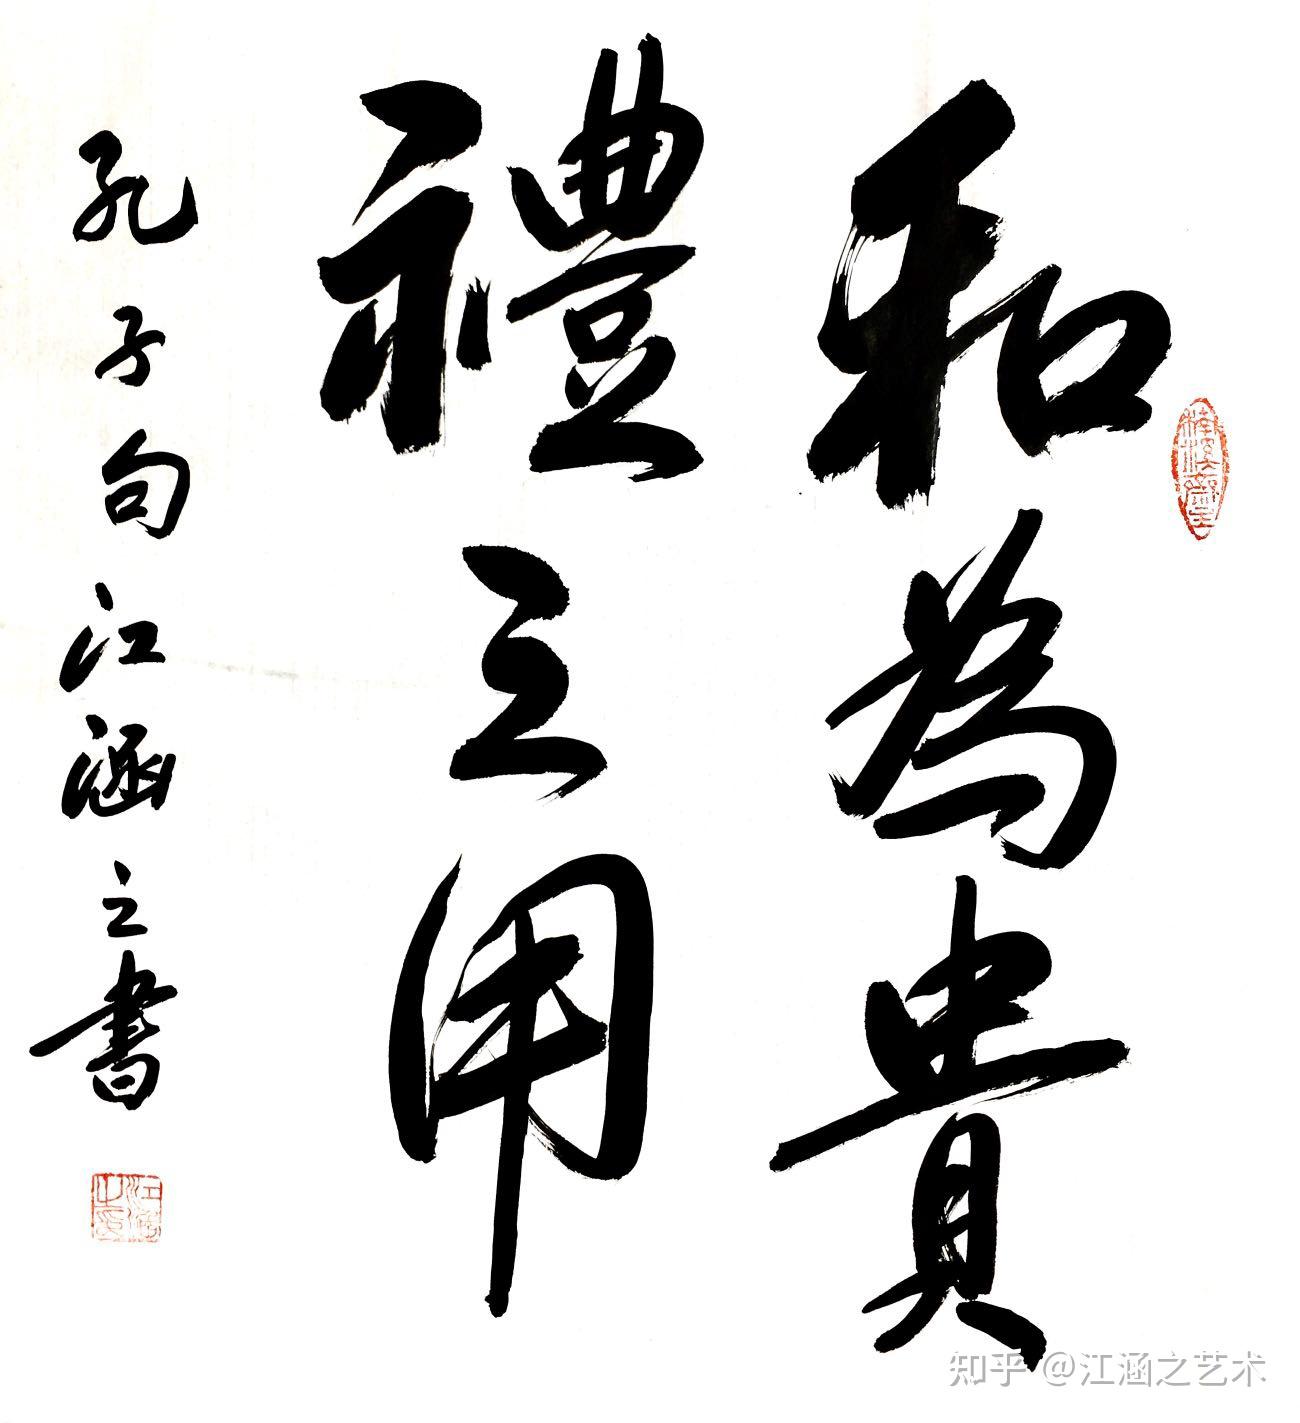 和為貴
禮之用
孔子句江涵之書
江涵之印
知乎 @江涵之艺术